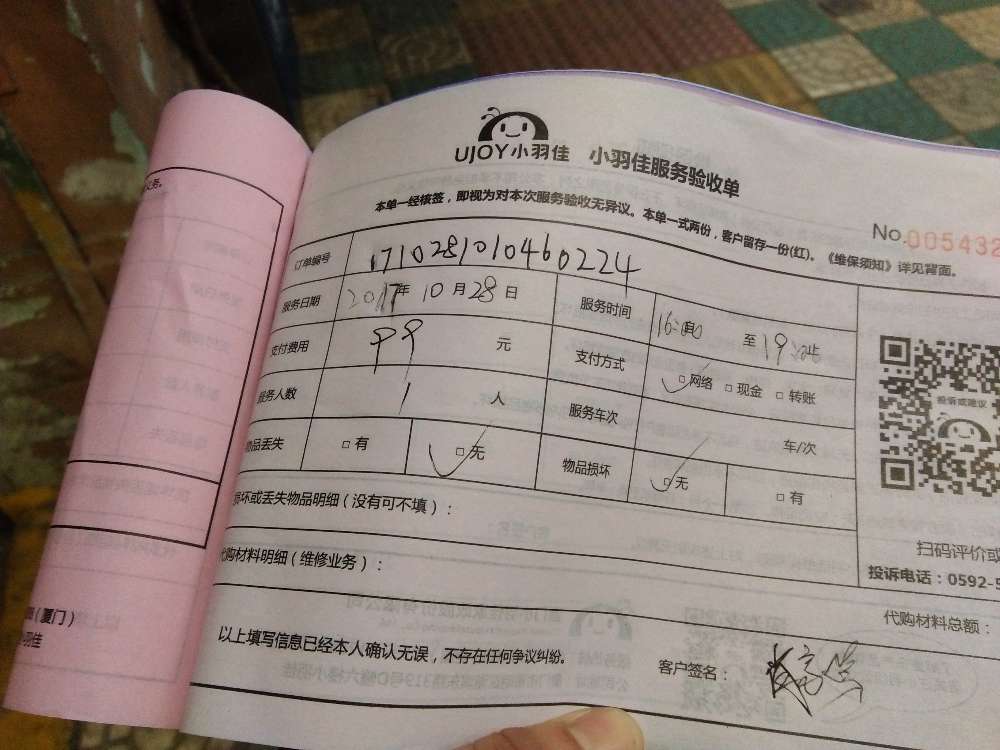 UJOY小羽佳 小羽佳服务验收单
本单一经核签，即视为对本次服务验收无异议。本单一式两份，客户留存一份(红)。《维保须知》详见背面。
No.005432
订单编号 171028101046 0224
服务日期 2017年10月28日 服务时间 16:00 至 19:
支付费用 99 元 支付方式 □网络 □现金 □转账
服务人数 1 人 服务车次 车/次
物品丢失 □有 □无 物品损坏 □无 □有
损坏或丢失物品明细（没有可不填）：
代购材料明细（维修业务）：
投诉或建议
扫码评价或
投诉电话：0592-5
代购材料总额：
以上填写信息已经本人确认无误，不存在任何争议纠纷。 客户签名：
（厦门）
小羽佳